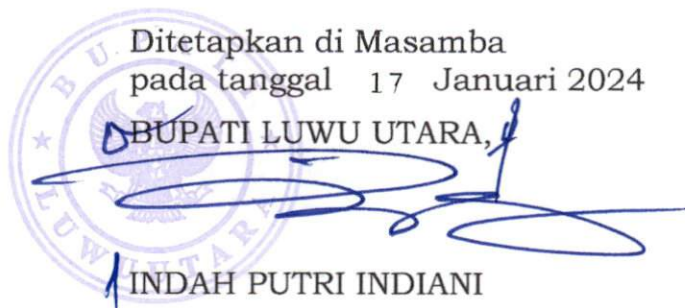 Ditetapkan di Masamba
pada tanggal 17 Januari 2024
BUPATI LUWU UTARA,
BUPATI
LUWU UTARA
INDAH PUTRI INDIANI